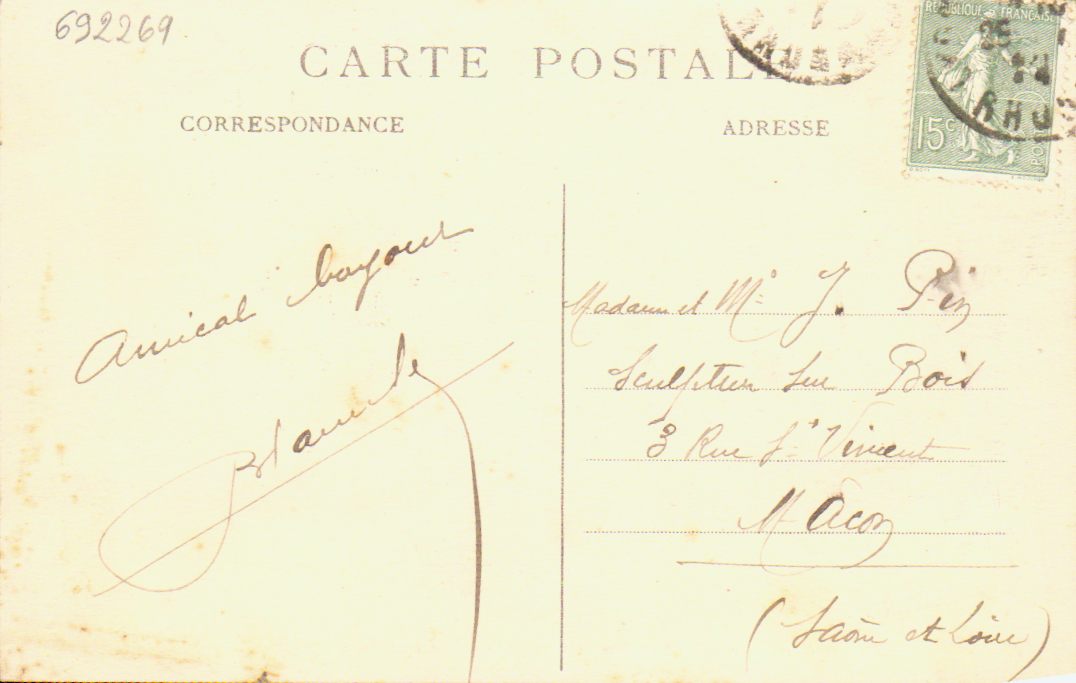 692269
CARTE POSTALE
CORRESPONDANCE
ADRESSE
REPUBLIQUE FRANÇAISE
25
RHO
15c
Amical bonjour
Madame et Mr J. Pin
Sculpteur sur Bois
3 Rue St Vincent
Macon
(Saône et Loire)